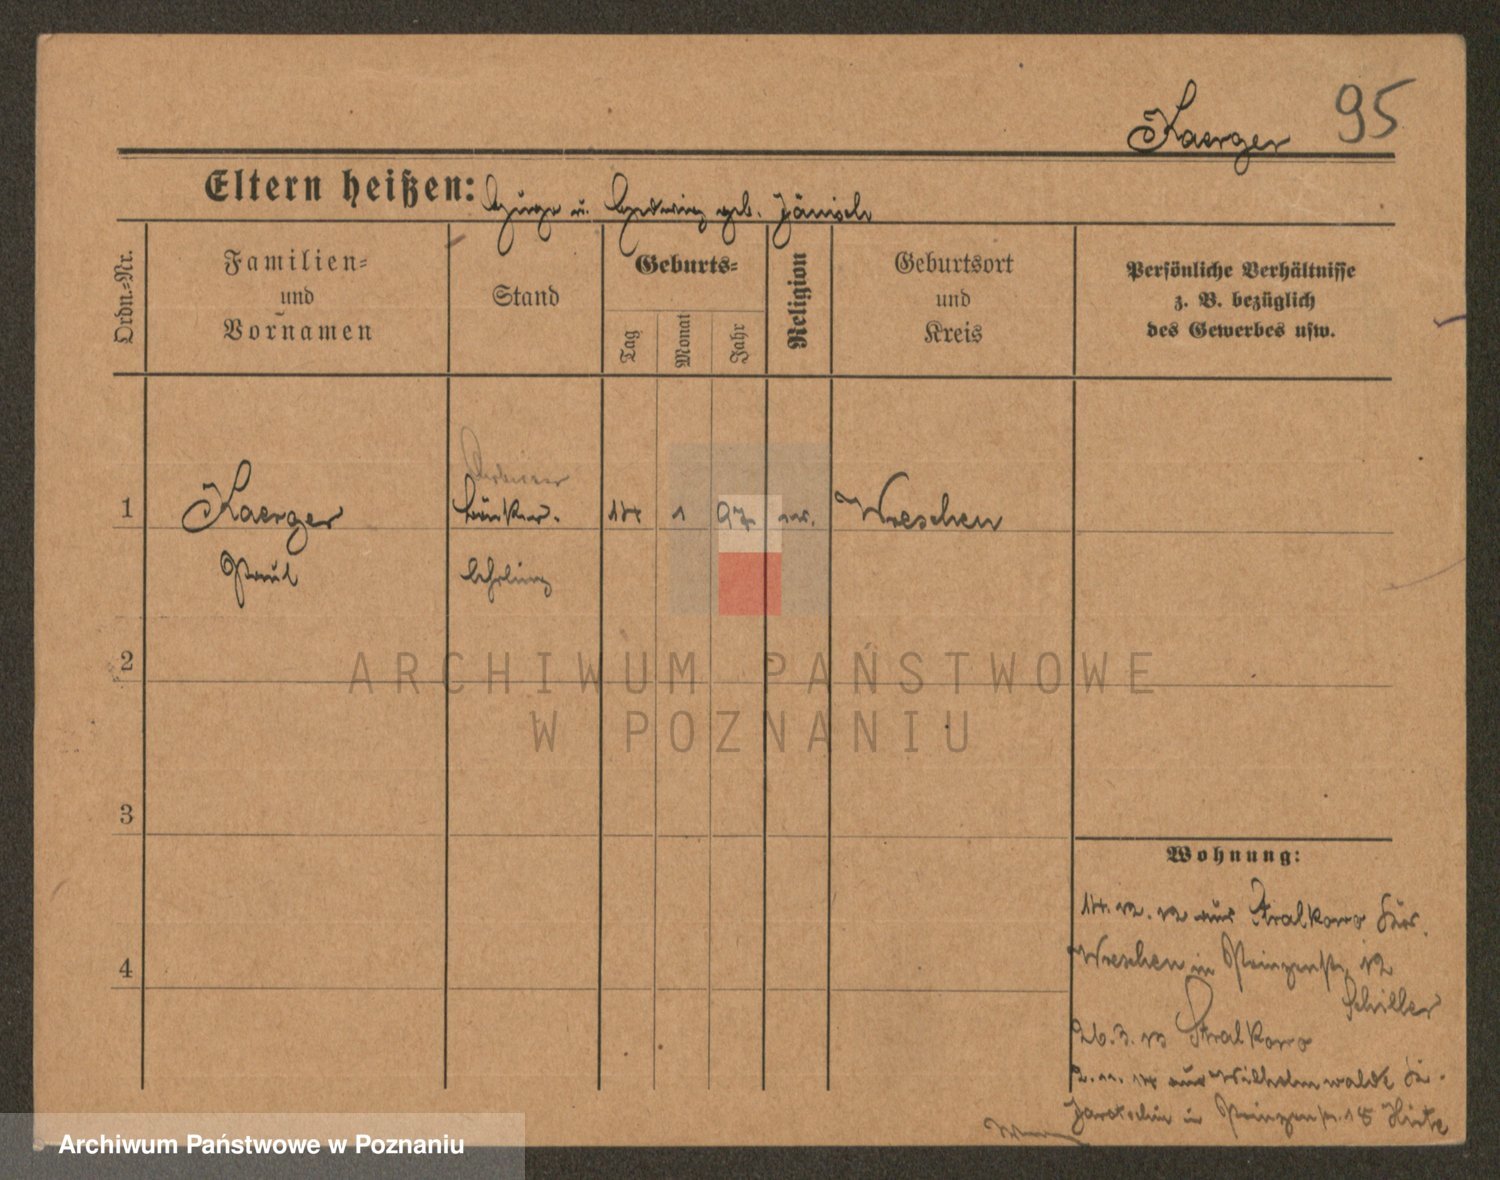 Kaerger 95
Eltern heißen: Hugo u. Hedwig geb. Jänisch
Ordn.-Nr.
Familien-
und
Vornamen
Stand
Geburts-
Tag
Monat
Jahr
Religion
Geburtsort
und
Kreis
Persönliche Verhältnisse
z. B. bezüglich
des Gewerbes usw.
1 Kaerger 14 1 97 Wreschen
Paul lehrling
2
ARCHIWUM PAŃSTWOWE
W POZNANIU
3
Wohnung:
14.12.12 aus Stralkowo
Wreschen in Prinzenstr. 12
4
Schiller
26.3.13 Stralkowo
2.11.14 aus Wilhelmswalde
Jarotschin in Prinzenstr. 15
Archiwum Państwowe w Poznaniu